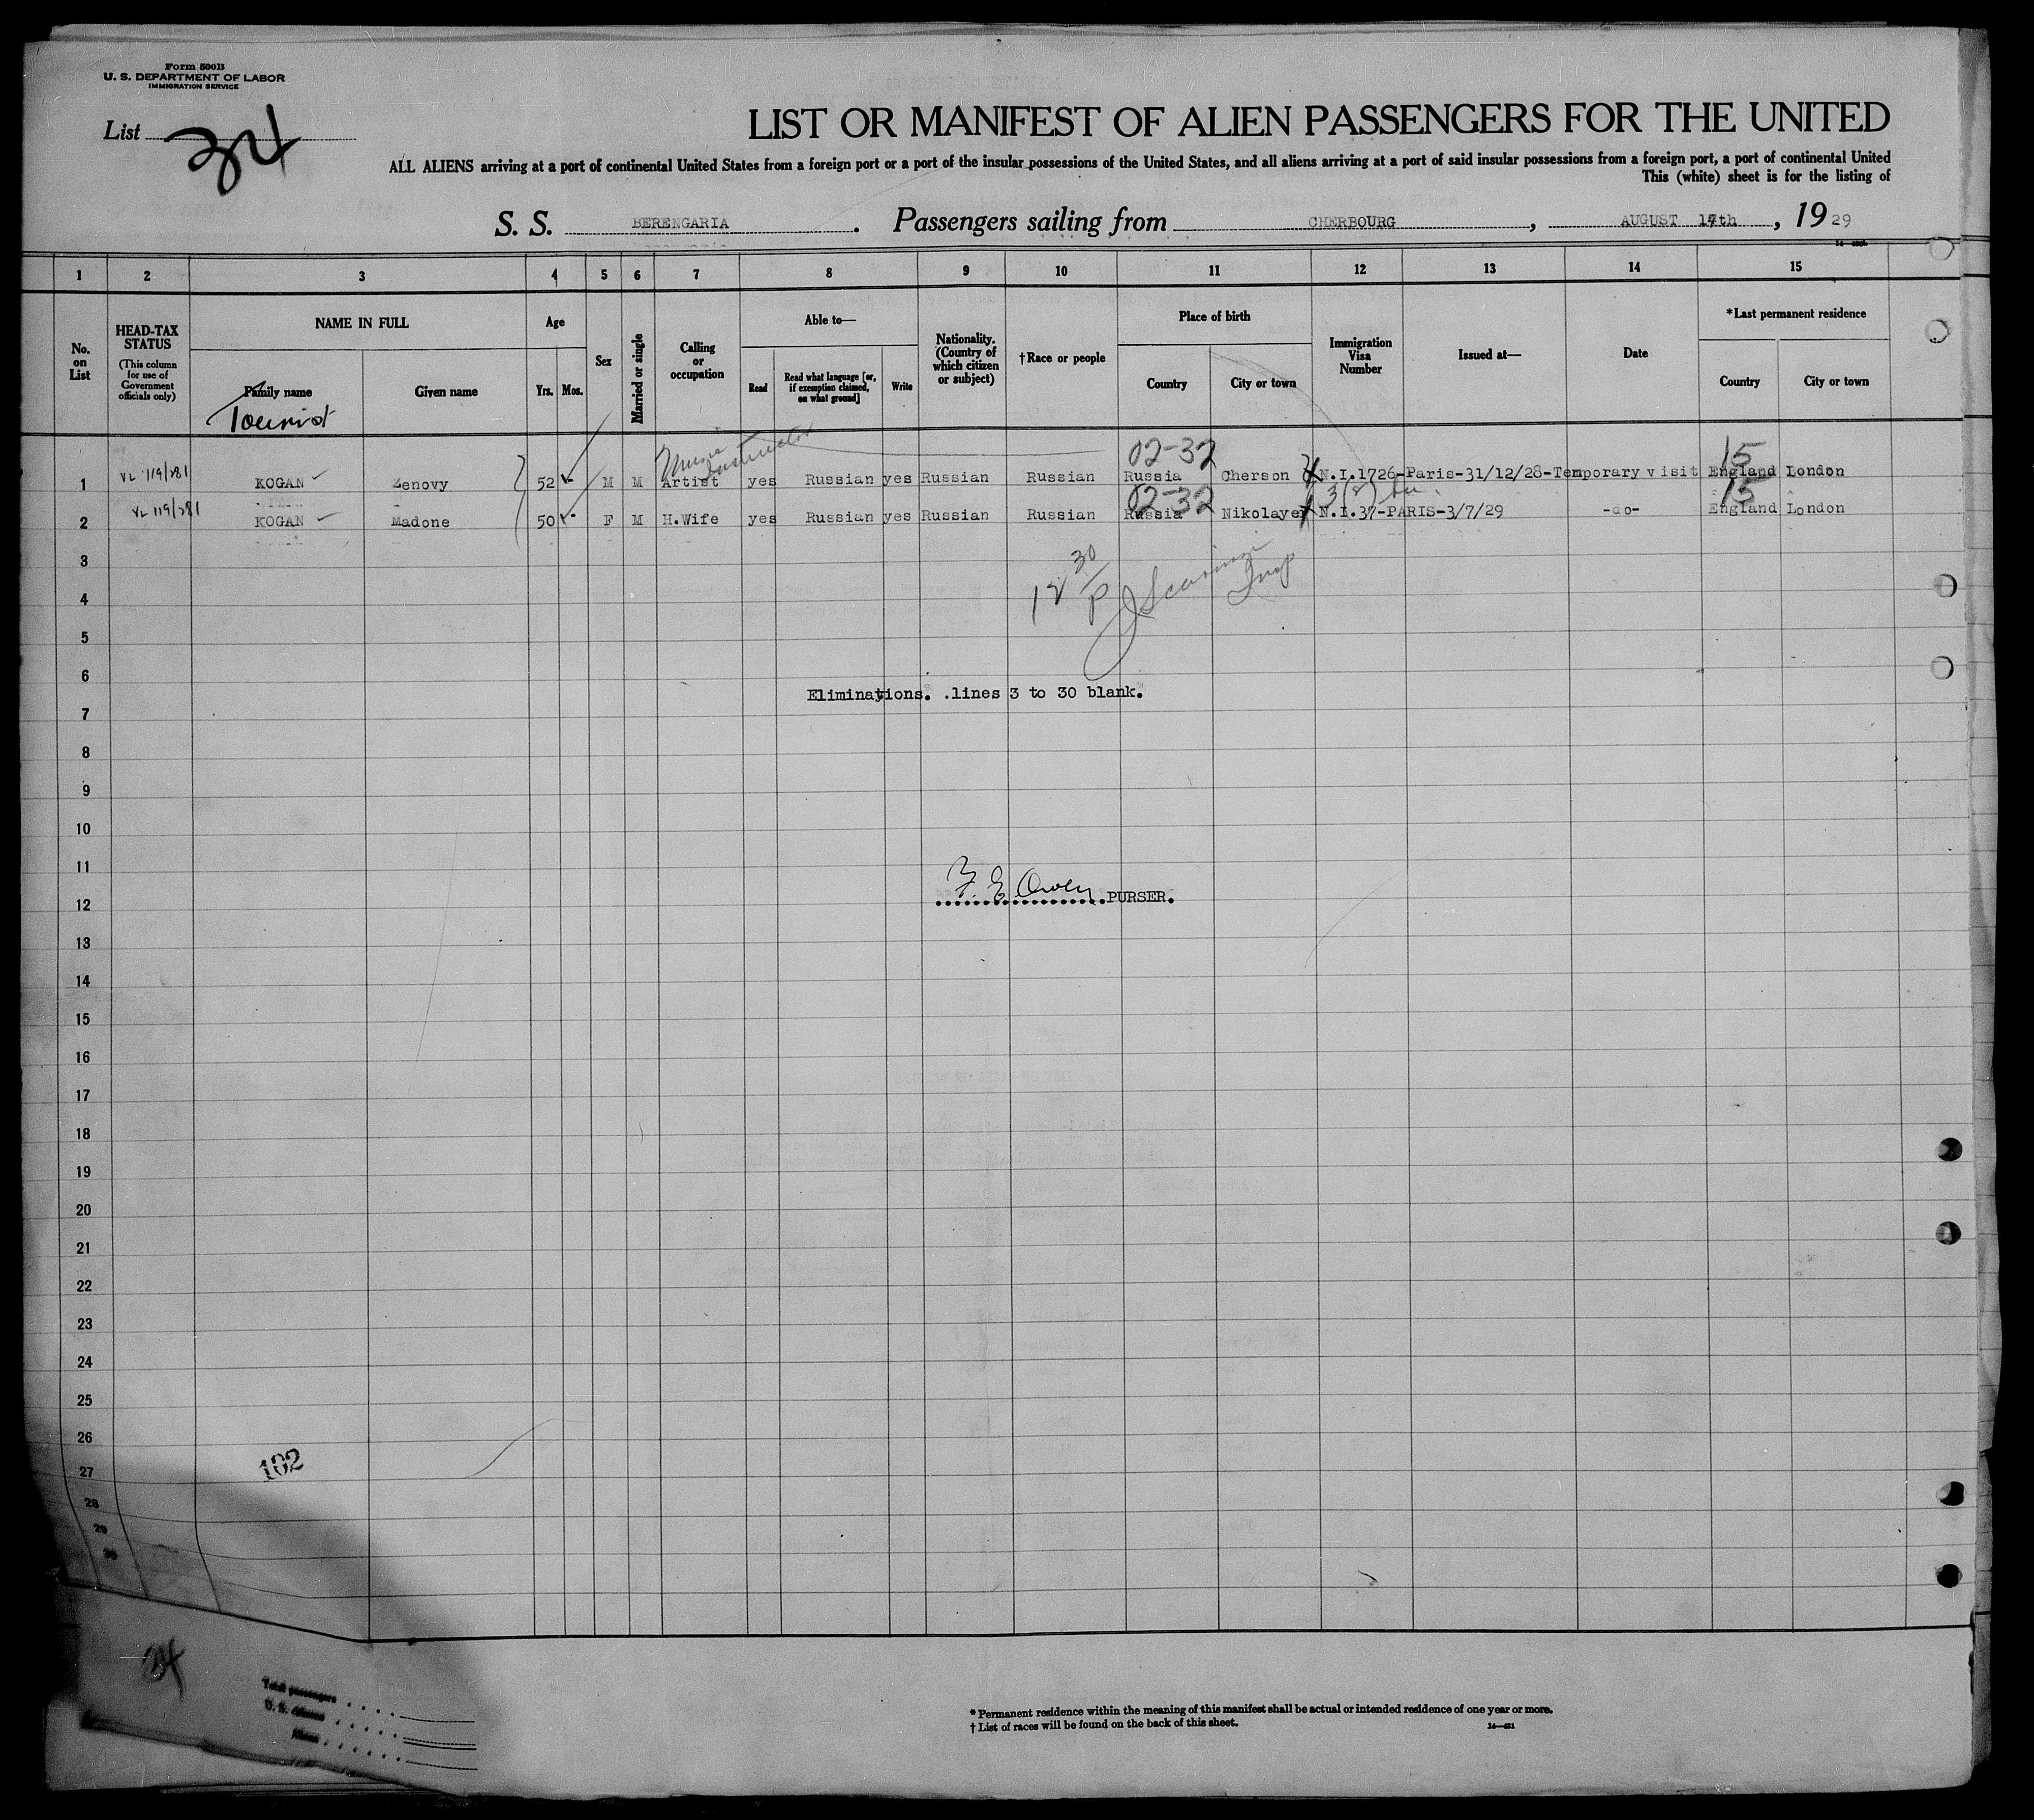 Form 500B
U. S. DEPARTMENT OF LABOR
IMMIGRATION SERVICE
List 34
LIST OR MANIFEST OF ALIEN PASSENGERS FOR THE UNITED
ALL ALIENS arriving at a port of continental United States from a foreign port or a port of the insular possessions of the United States, and all aliens arriving at a port of said insular possessions from a foreign port, a port of continental United
This (white) sheet is for the listing of
S. S. BERENGARIA. Passengers sailing from CHERBOURG, AUGUST 17th, 1929
1 2 3 4 5 6 7 8 9 10 11 12 13 14 15
No. on List
HEAD-TAX STATUS
(This column for use of Government officials only)
NAME IN FULL
Family name
Given name
Age
Yrs. Mos.
Sex
Married or single
Calling or occupation
Able to—
Read
Read what language [or, if exemption claimed, on what ground]
Write
Nationality. (Country of which citizen or subject)
†Race or people
Place of birth
Country
City or town
Immigration Visa Number
Issued at—
Date
*Last permanent residence
Country
City or town
Tourist
Music Instructor
02-32
15
1 VL 119/281 KOGAN Zenovy 52 M M Artist yes Russian yes Russian Russian Russia Cherson N.I.1726-Paris-31/12/28-Temporary visit England London
02-32 3(2) 15
2 VL 119/281 KOGAN Madone 50 F M H.Wife yes Russian yes Russian Russian Russia Nikolayev N.I.37-PARIS-3/7/29 -do- England London
3
12 30/P
Insp
4
5
6
Eliminations. .lines 3 to 30 blank.
7
8
9
10
11
F. E. Owen PURSER.
12
13
14
15
16
17
18
19
20
21
22
23
24
25
26
102
27
28
29
30
34
Total passengers
U. S. citizens
Aliens
* Permanent residence within the meaning of this manifest shall be actual or intended residence of one year or more.
† List of races will be found on the back of this sheet.
14—481